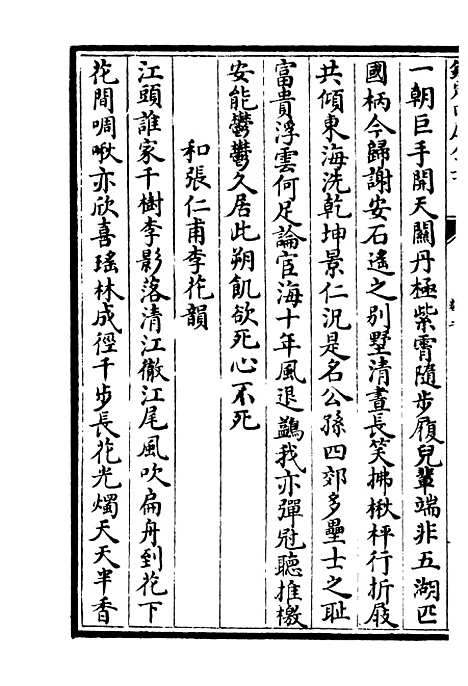 一朝巨手開天關丹極紫霄隨步履兒輩端非五湖匹
國柄今歸謝安石遙之别墅清晝長笑拂楸枰行折屐
共傾東海洗乾坤景仁況是名公孫四郊多壘士之耻
富貴浮雲何足論宦海十年風退鷁我亦彈冠聽推檄
安能鬱鬱久居此朔飢欲死心不死
和張仁甫李花韻
江頭誰家千樹李影落清江徹江尾風吹扁舟到花下
花間啁啾亦欣喜瑶林成徑千步長花光燭天天半香